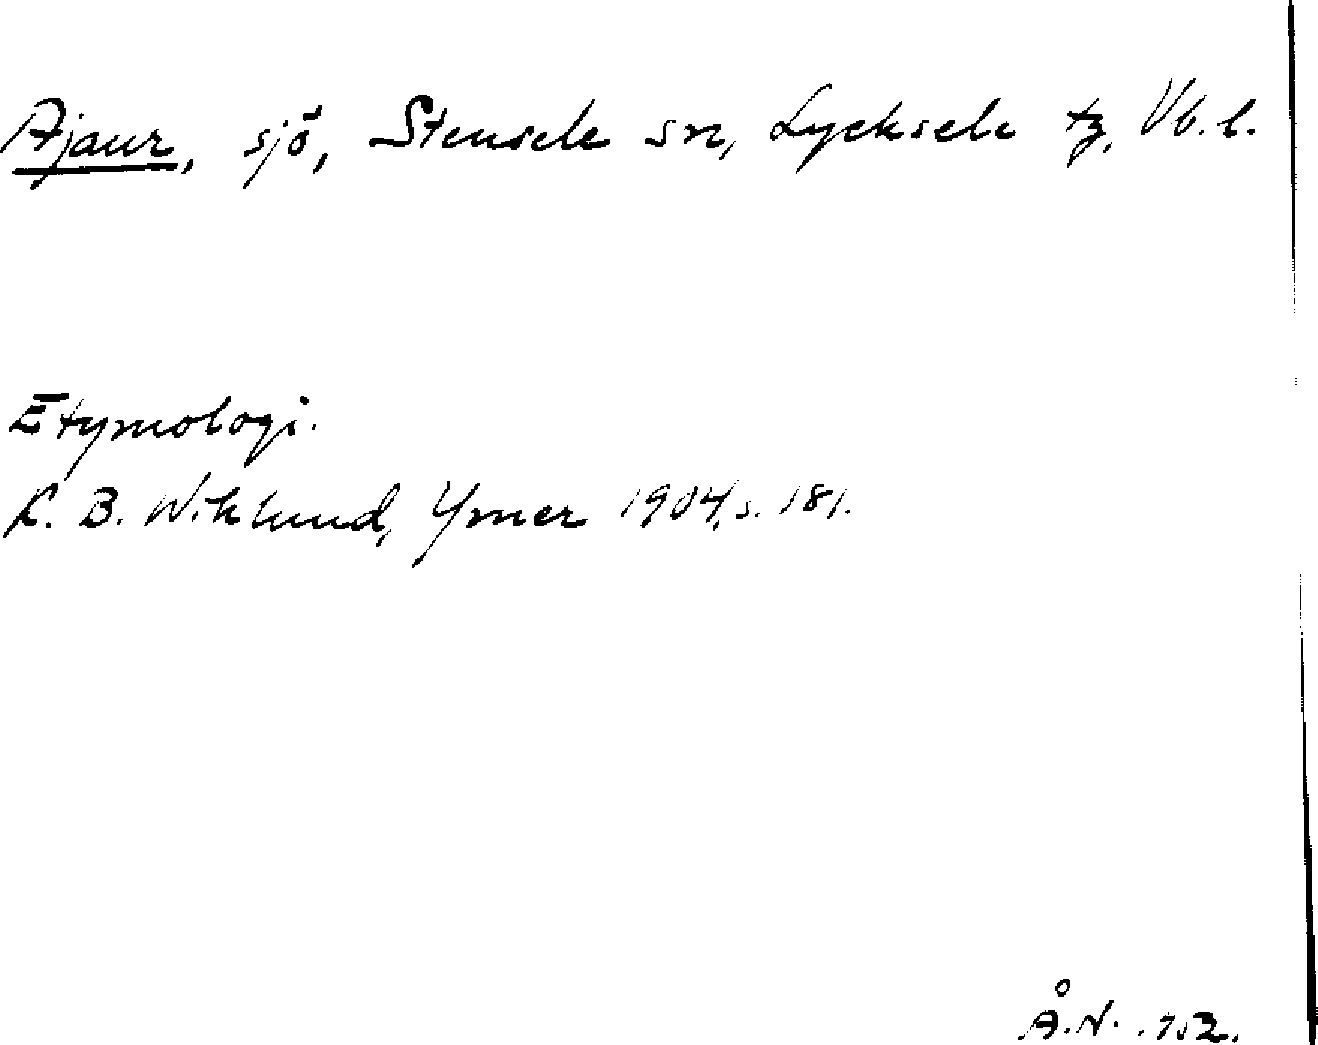 Ajaur, sjö, Stensele sn, Lycksele tg, Vb. l.
Etymologi.
K. B. Wiklund, Ymer 1904, s. 181.
Å.N.